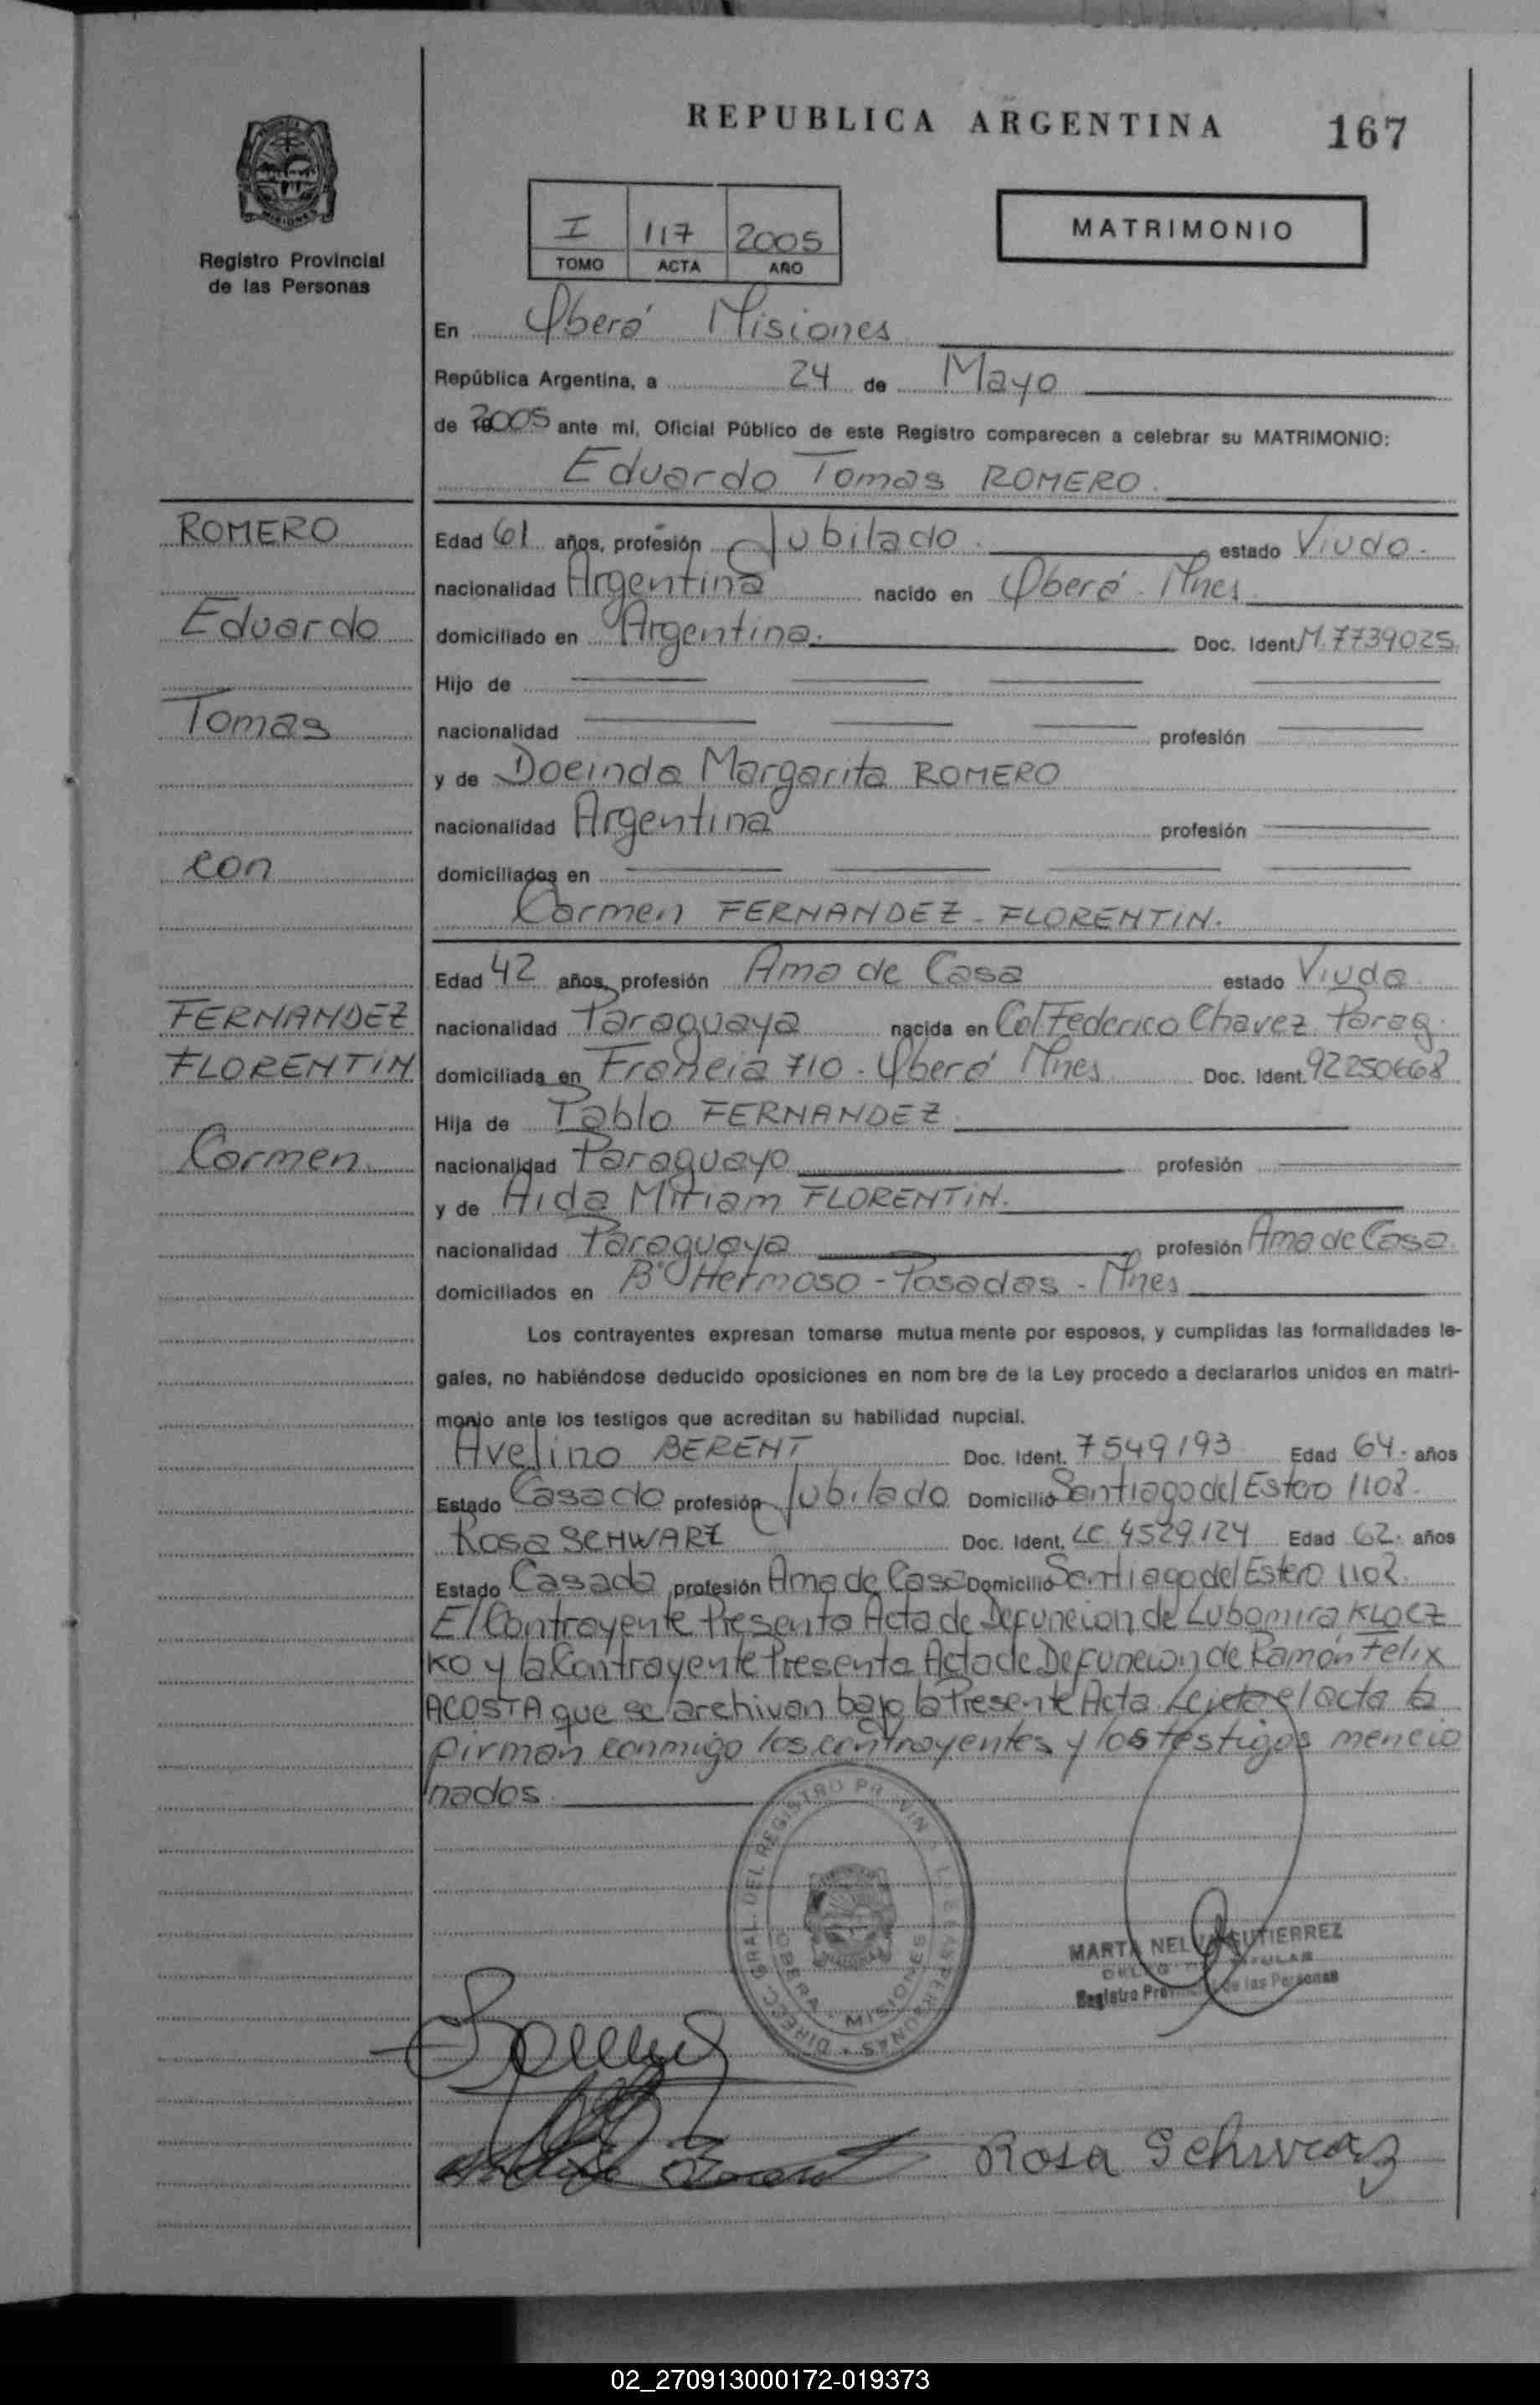 REPUBLICA ARGENTINA
167
Registro Provincial
de las Personas
I 117 2005
TOMO ACTA AÑO
MATRIMONIO
En Oberá Misiones
República Argentina, a 24 de Mayo
de 2005 ante mí, Oficial Público de este Registro comparecen a celebrar su MATRIMONIO:
Eduardo Tomas ROMERO
ROMERO
Eduardo
Tomas
con
FERNANDEZ
FLORENTIN
Carmen
Edad 61 años, profesión Jubilado. estado Viudo.
nacionalidad Argentina nacido en Oberá - Mnes
domiciliado en Argentina. Doc. Ident. M. 7739025
Hijo de
nacionalidad profesión
y de Margarita ROMERO
nacionalidad Argentina profesión
domiciliados en
Carmen FERNANDEZ - FLORENTIN.
Edad 42 años, profesión Ama de Casa estado Viuda
nacionalidad Paraguaya nacida en Col Federico Chavez Parag.
domiciliada en Francia 710 - Oberá Mnes Doc. Ident. 92250668
Hija de Pablo FERNANDEZ
nacionalidad Paraguayo profesión
y de Aida Miriam FLORENTIN.
nacionalidad Paraguaya profesión Ama de Casa
domiciliados en B° Hermoso - Posadas - Mnes
Los contrayentes expresan tomarse mutua mente por esposos, y cumplidas las formalidades le-
gales, no habiéndose deducido oposiciones en nom bre de la Ley procedo a declararlos unidos en matri-
monio ante los testigos que acreditan su habilidad nupcial.
Avelino BERENT Doc. Ident. 7549193 Edad 64. años
Estado Casado profesión Jubilado Domicilio Santiago del Estero 1102.
Rosa SCHWARZ Doc. Ident. LC 4529124 Edad 62. años
Estado Casada profesión Ama de Casa Domicilio Santiago del Estero 1102.
El Contrayente Presenta Acta de Defuncion de Lubomira KLOCZ
KO y la Contrayente Presenta Acta de Defuncion de Ramón Felix
ACOSTA que se archivan bajo la Presente Acta Leida el acta la
firman conmigo los contrayentes y los testigos mencio
nados
DIREC. GRAL. DEL REGISTRO PROVINCIAL DE LAS PERSONAS
OBERA - MISIONES
MARTA NELVA GUTIERREZ
Registro Provincial de las Personas
Rosa Schwarz
02_270913000172-019373